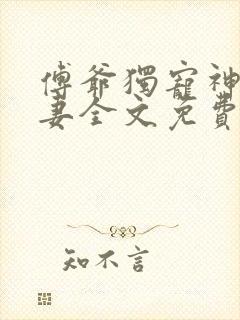 傅爺獨寵神
妻全文免費
知不言